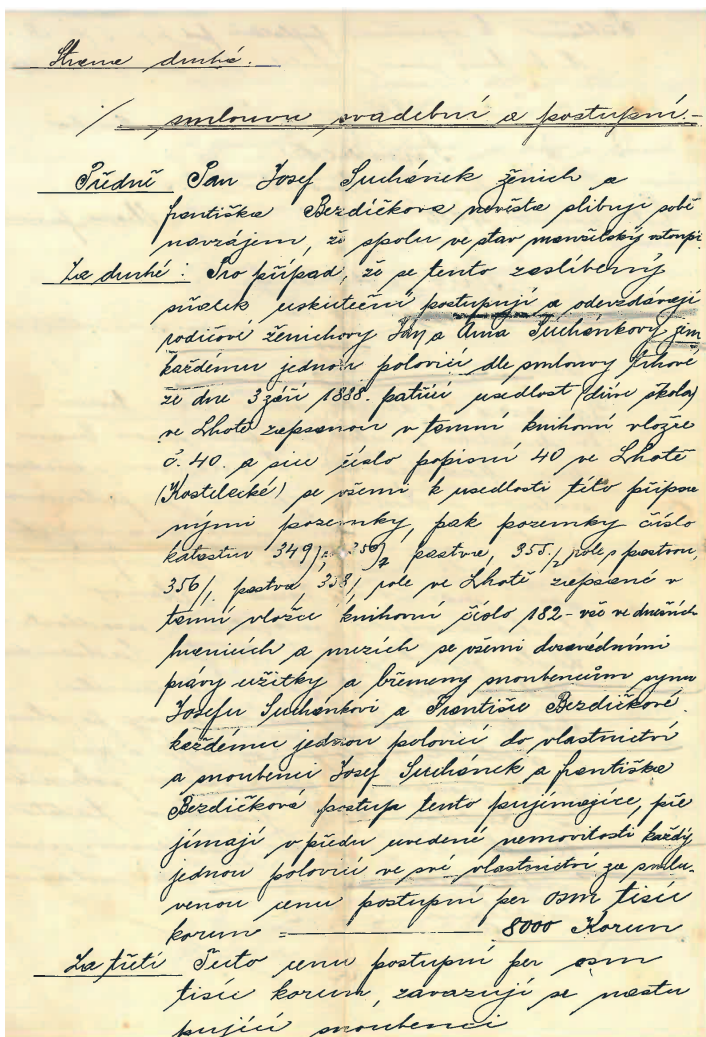 Strana druhá.
/ smlouvu svadební a postupní.-
Předně Pan Josef Suchánek ženich a
františka Bezdíčkova nevěsta slibují sobě
navzájem, že spolu ve stav manželský vstoupí
Za druhé: Pro případ, že se tento zaslíbený
sňatek uskuteční postupují a odevzdávají
rodičové ženichovy Jan a Anna Suchánkovy jim
každému jednou polovicí dle smlouvy trhové
ze dne 3 září 1888. patřící usedlost (dříve škola)
ve Lhotě zapsanou v tamní knihovní vložce
č. 40. a sice číslo popisní 40 ve Lhotě
(Kostelecké) se všemi k usedlosti této připsa
nými pozemky, pak pozemky číslo
katastru 349/, 350/2 pastva, 355./2 role s pastvou,
356/1 pastva, 358/1 role ve Lhotě zapsané v
tamní vložce knihovní číslo 182 - vše ve dnešních
hranicích a mezích se všemi dosavádními
právy užitky a břemeny snoubencům synu
Josefu Suchánkovi a Františce Bezdíčkové.
každému jednou polovicí do vlastnictví
a snoubenci Josef Suchánek a františka
Bezdíčková postup tento přijímajíce, pře
jímají v předu uvedené nemovitosti každý
jednou polovicí ve své vlastnictví za smlu-
venou cenu postupní per osm tisíc
korun = 8000 Korun
Za třetí Tuto cenu postupní per osm
tisíc korun, zavazují se nastu
pující snoubenci